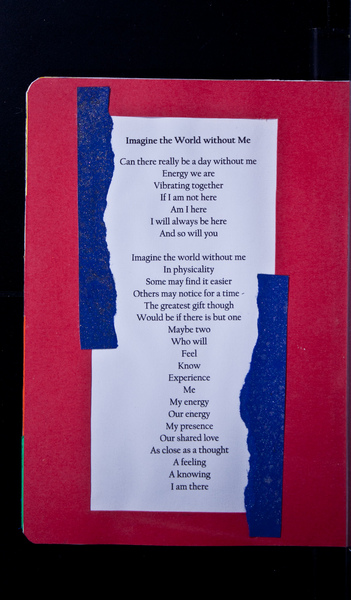 Imagine the World without Me
Can there really be a day without me
Energy we are
Vibrating together
If I am not here
Am I here
I will always be here
And so will you
Imagine the world without me
In physicality
Some may find it easier
Others may notice for a time -
The greatest gift though
Would be if there is but one
Maybe two
Who will
Feel
Know
Experience
Me
My energy
Our energy
My presence
Our shared love
As close as a thought
A feeling
A knowing
I am there